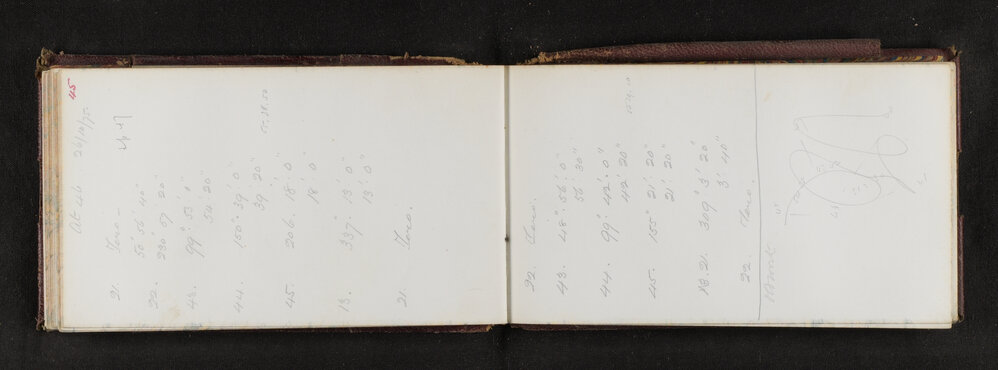 45
At 46 26/10/95
21. Zero -
50° 56' 40"
22. 230° 57' 20"
43. 99° 53' 0"
54' 20"
44. 150° 39' 0"
39' 20"
45. 206. 18' 0"
18' 0"
13. 337. 13' 0"
13' 0"
21. Zero.
22. Zero.
43. 48° 56' 0"
56' 30"
44. 99° 42' 0"
42' 20"
45. 155° 21' 20"
21' 20"
21. 309° 3' 20"
3' 40"
22. Zero.